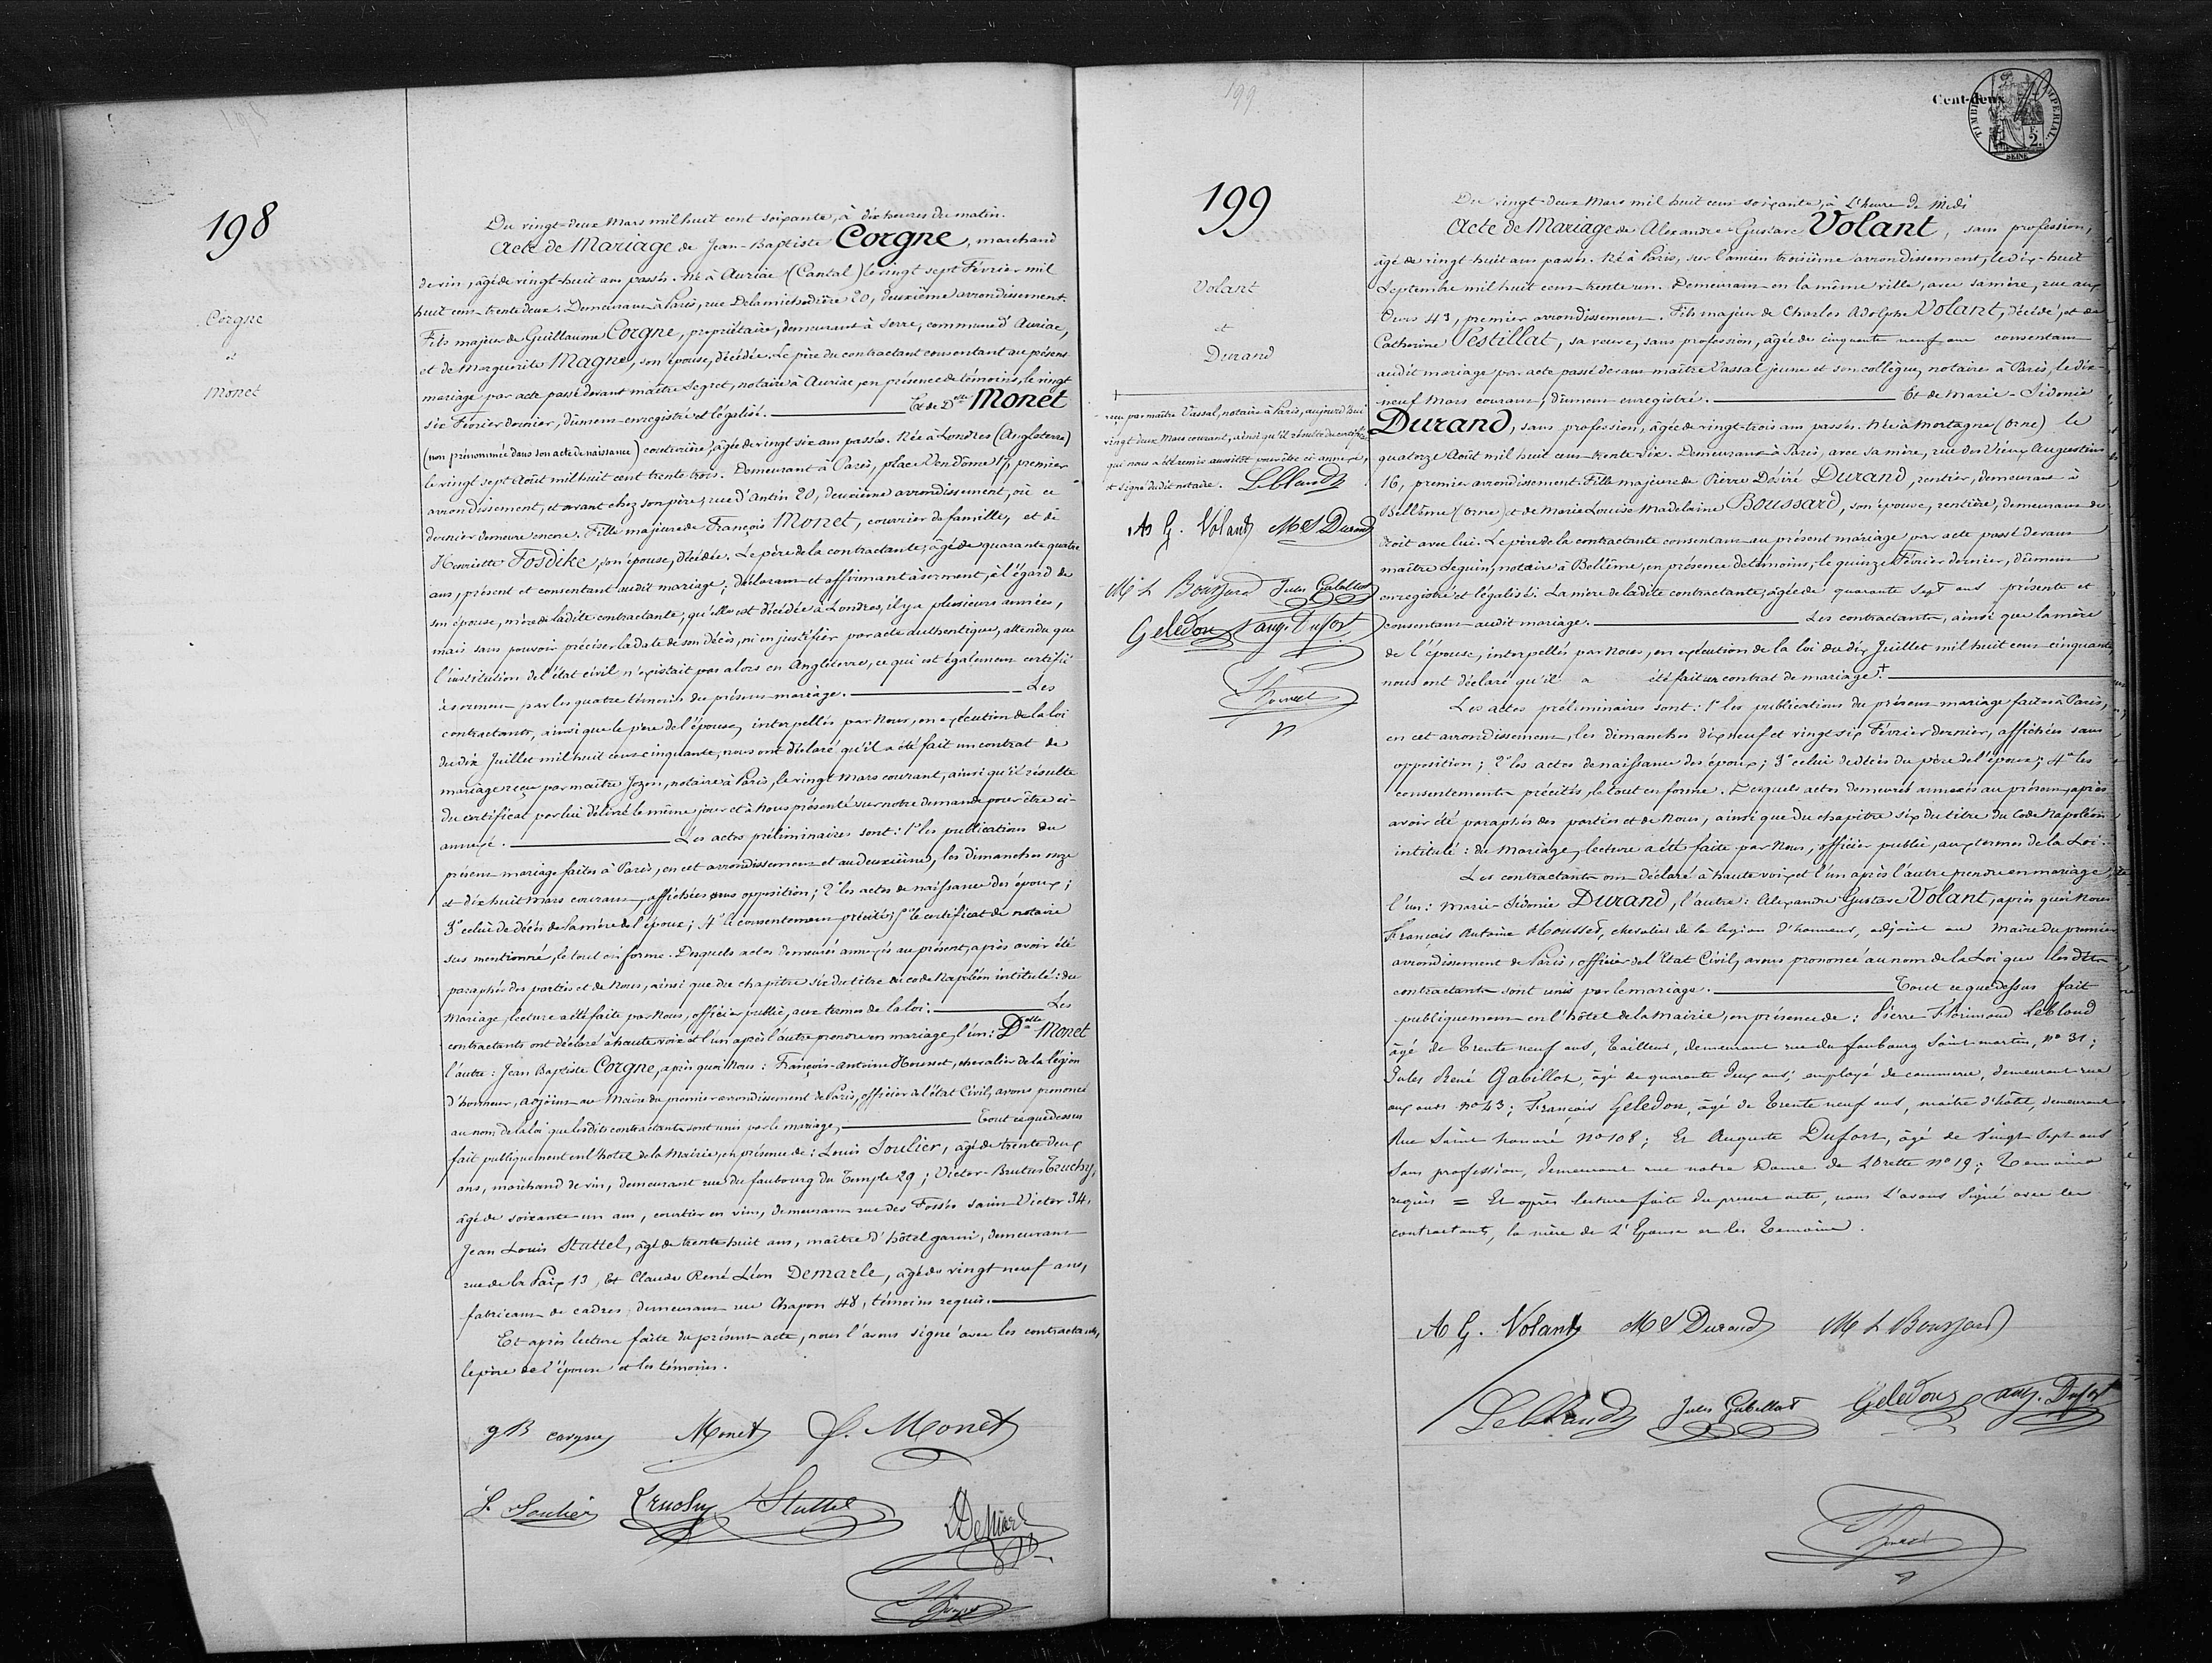 198
Corgne
et
Monet
Du vingt-deux Mars mil huit cent soixante, à dix heures du matin.
Acte de Mariage de Jean-Baptiste Corgne, marchand
de vin, âgé de vingt-huit ans passés. Né à Auriac (Cantal) le vingt sept Février mil
huit cent trente deux. Demeurant à Paris, rue Delamichodière 20, deuxième arrondissement.
Fils majeur de Guillaume Corgne, propriétaire, demeurant à Serre, commune d'Auriac,
et de Marguerite Magne, son épouse, décédée. Le père du contractant consentant au présent
mariage par acte passé devant maître Segret, notaire à Auriac, en présence de témoins, le vingt
six Février dernier, dûment enregistré et légalisé. Et de Dlle Monet
(non prénommée dans son acte de naissance) couturière, âgée de vingt six ans passés. Née à Londres (Angleterre)
le vingt sept Août mil huit cent trente trois. Demeurant à Paris, place Vendôme 17, premier
arrondissement, et avant chez son père, rue d'Antin 20, deuxième arrondissement, où ce
dernier demeure encore. Fille majeure de François Monet, courrier de famille, et de
Henriette Fosdike, son épouse, décédée. Le père de la contractante, âgé de quarante quatre
ans, présent et consentant audit mariage; déclarant et affirmant à serment, à l'égard de
son épouse, mère de ladite contractante, qu'elle est décédée à Londres, il y a plusieurs années,
mais sans pouvoir préciser la date de son décès, ni en justifier par acte authentique, attendu que
l'institution de l'état civil n'existait pas alors en Angleterre, ce qui est également certifié
à serment par les quatre témoins du présent mariage. Les
contractants, ainsi que le père de l'épouse, interpellés par Nous, en exécution de la loi
du dix Juillet mil huit cent cinquante, nous ont déclaré qu'il a été fait un contrat de
mariage reçu par maître Jozon, notaire à Paris, le vingt Mars courant, ainsi qu'il résulte
du certificat par lui délivré le même jour et à Nous présenté sur notre demande pour être ci-
annexé. Les actes préliminaires sont: 1° les publications du
présent mariage faites à Paris, en cet arrondissement et au deuxième, les dimanches onze
et dix huit Mars courant, affichées sans opposition; 2° les actes de naissance des époux;
3° celui de décès de la mère de l'époux; 4° le consentement précité; 5° le certificat de notaire
sus mentionné, le tout en forme. Desquels actes demeurés annexés au présent, après avoir été
paraphés des parties et de Nous, ainsi que du chapitre six du titre du code Napoléon intitulé: du
Mariage, lecture a été faite par Nous, officier public, aux termes de la loi. Les
contractants ont déclaré à haute voix et l'un après l'autre prendre en mariage, l'un: Delle Monet
l'autre: Jean Baptiste Corgne, après quoi Nous: François-Antoine Housset, chevalier de la légion
d'honneur, adjoint au Maire du premier arrondissement de Paris, officier de l'état Civil, avons prononcé
au nom de la loi que lesdits contractants sont unis par le mariage, Tout ce que dessus
fait publiquement en l'hotel de la Mairie, en présence de: Louis Soulier, âgé de trente deux
ans, marchand de vin, demeurant rue du faubourg du Temple 29; Victor-Brutus Truchy,
âgé de soixante un ans, courtier en vins, demeurant rue des Fossés Saint-Victor 34,
Jean Louis Stuttel, âgé de trente huit ans, maître d'hôtel garni, demeurant
rue de la Paix 13, Et Claude René Léon Demarle, âgé de vingt neuf ans,
fabricant de cadres, demeurant rue Chapon 48, témoins requis.
Et après lecture faite du présent acte, nous l'avons signé avec les contractants,
le père de l'épouse et les témoins.
JB corgne Monet F. Monet
L. Soulier Truchy Stuttel Demarle
Housset
199
199
Volant
et
Durand
reçu par maître Vassal, notaire à Paris, aujourd'hui
vingt deux Mars courant, ainsi qu'il résulte du certificat
qui nous a été remis aussitôt pour être ci-annexé,
et signé dudit notaire. Lebland
A G. Volant M S Durand
M L Boussard Jules Gabillot
Geledon aug. Dufort
Housset
Cent-deux
TIMBRE IMPÉRIAL
2.
SEINE
Du vingt-deux Mars mil huit cent soixante, à L'heure de Midi
Acte de Mariage de Alexandre-Gustave Volant, sans profession,
âgé de vingt-huit ans passés. Né à Paris, sur l'ancien troisième arrondissement, le dix-huit
Septembre mil huit cent trente un. Demeurant en la même ville, avec sa mère, rue aux
Ours 43, premier arrondissement. Fils majeur de Charles Adolphe Volant, décédé, et de
Catherine Pestillat, sa veuve, sans profession, âgée de cinquante neuf ans consentant
audit mariage par acte passé devant maître Vassal jeune et son collègue, notaires à Paris, le dix-
neuf Mars courant, dûment enregistré. Et de Marie-Sidonie
Durand, sans profession, âgée de vingt-trois ans passés. Née à Mortagne (Orne) le
quatorze Août mil huit cent trente six. Demeurant à Paris, avec sa mère, rue des Vieux Augustins
16, premier arrondissement. Fille majeure de Pierre Désiré Durand, rentier, demeurant à
Bellême (Orne) et de Marie Louise Madelaine Boussard, son épouse, rentière, demeurant de
droit avec lui. Le père de la contractante consentant au présent mariage par acte passé devant
maître Seguin, notaire à Bellême, en présence de témoins, le quinze Février dernier, dûment
enregistré et légalisé. La mère de ladite contractante, âgée de quarante sept ans présente et
consentant audit mariage. Les contractants, ainsi que la mère
de l'épouse, interpellés par Nous, en exécution de la loi du dix Juillet mil huit cent cinquante,
nous ont déclaré qu'il a été fait un contrat de mariage +.
Les actes préliminaires sont: 1° les publications du présent mariage faites à Paris,
en cet arrondissement, les dimanches dix neuf et vingt six Février dernier, affichées sans
opposition; 2° les actes de naissance des époux; 3° celui de décès du père de l'époux; 4° les
consentements précités, le tout en forme. Desquels actes demeurés annexés au présent, après
avoir été paraphés des parties et de Nous, ainsi que du chapitre six du titre du Code Napoléon
intitulé: du Mariage, lecture a été faite par Nous, officier public, aux termes de la Loi.
Les contractants ont déclaré à haute voix et l'un après l'autre prendre en mariage
l'un: Marie-Sidonie Durand, l'autre: Alexandre Gustave Volant, après quoi Nous
François Antoine Housset, chevalier de la légion d'honneur, adjoint au Maire du premier
arrondissement de Paris, officier de l'Etat Civil, avons prononcé au nom de la Loi que les dits
contractants sont unis par le mariage. Tout ce que dessus fait
publiquement en l'hôtel de la Mairie, en présence de: Pierre Florimond Lebland
âgé de Trente neuf ans, Tailleur, demeurant rue du faubourg Saint-martin, n° 31;
Jules René Gabillot, âgé de quarante deux ans, employé de commerce, demeurant rue
aux ours n° 43; François Geledon, âgé de Trente neuf ans, maître d'hôtel, demeurant
Rue Saint honoré n° 108; Et Auguste Dufort, âgé de Vingt-Sept ans
Sans profession, demeurant rue notre Dame de L'Orette n° 19; Temoins
requis = Et après lecture faite du present acte, nous L'avons Signé avec les
contractants, la mère de L'Epouse et les Temoins.
A G. Volant M S Durand M L Boussard
Lebland Jules Gabillot Geledon aug. Dufort
Housset